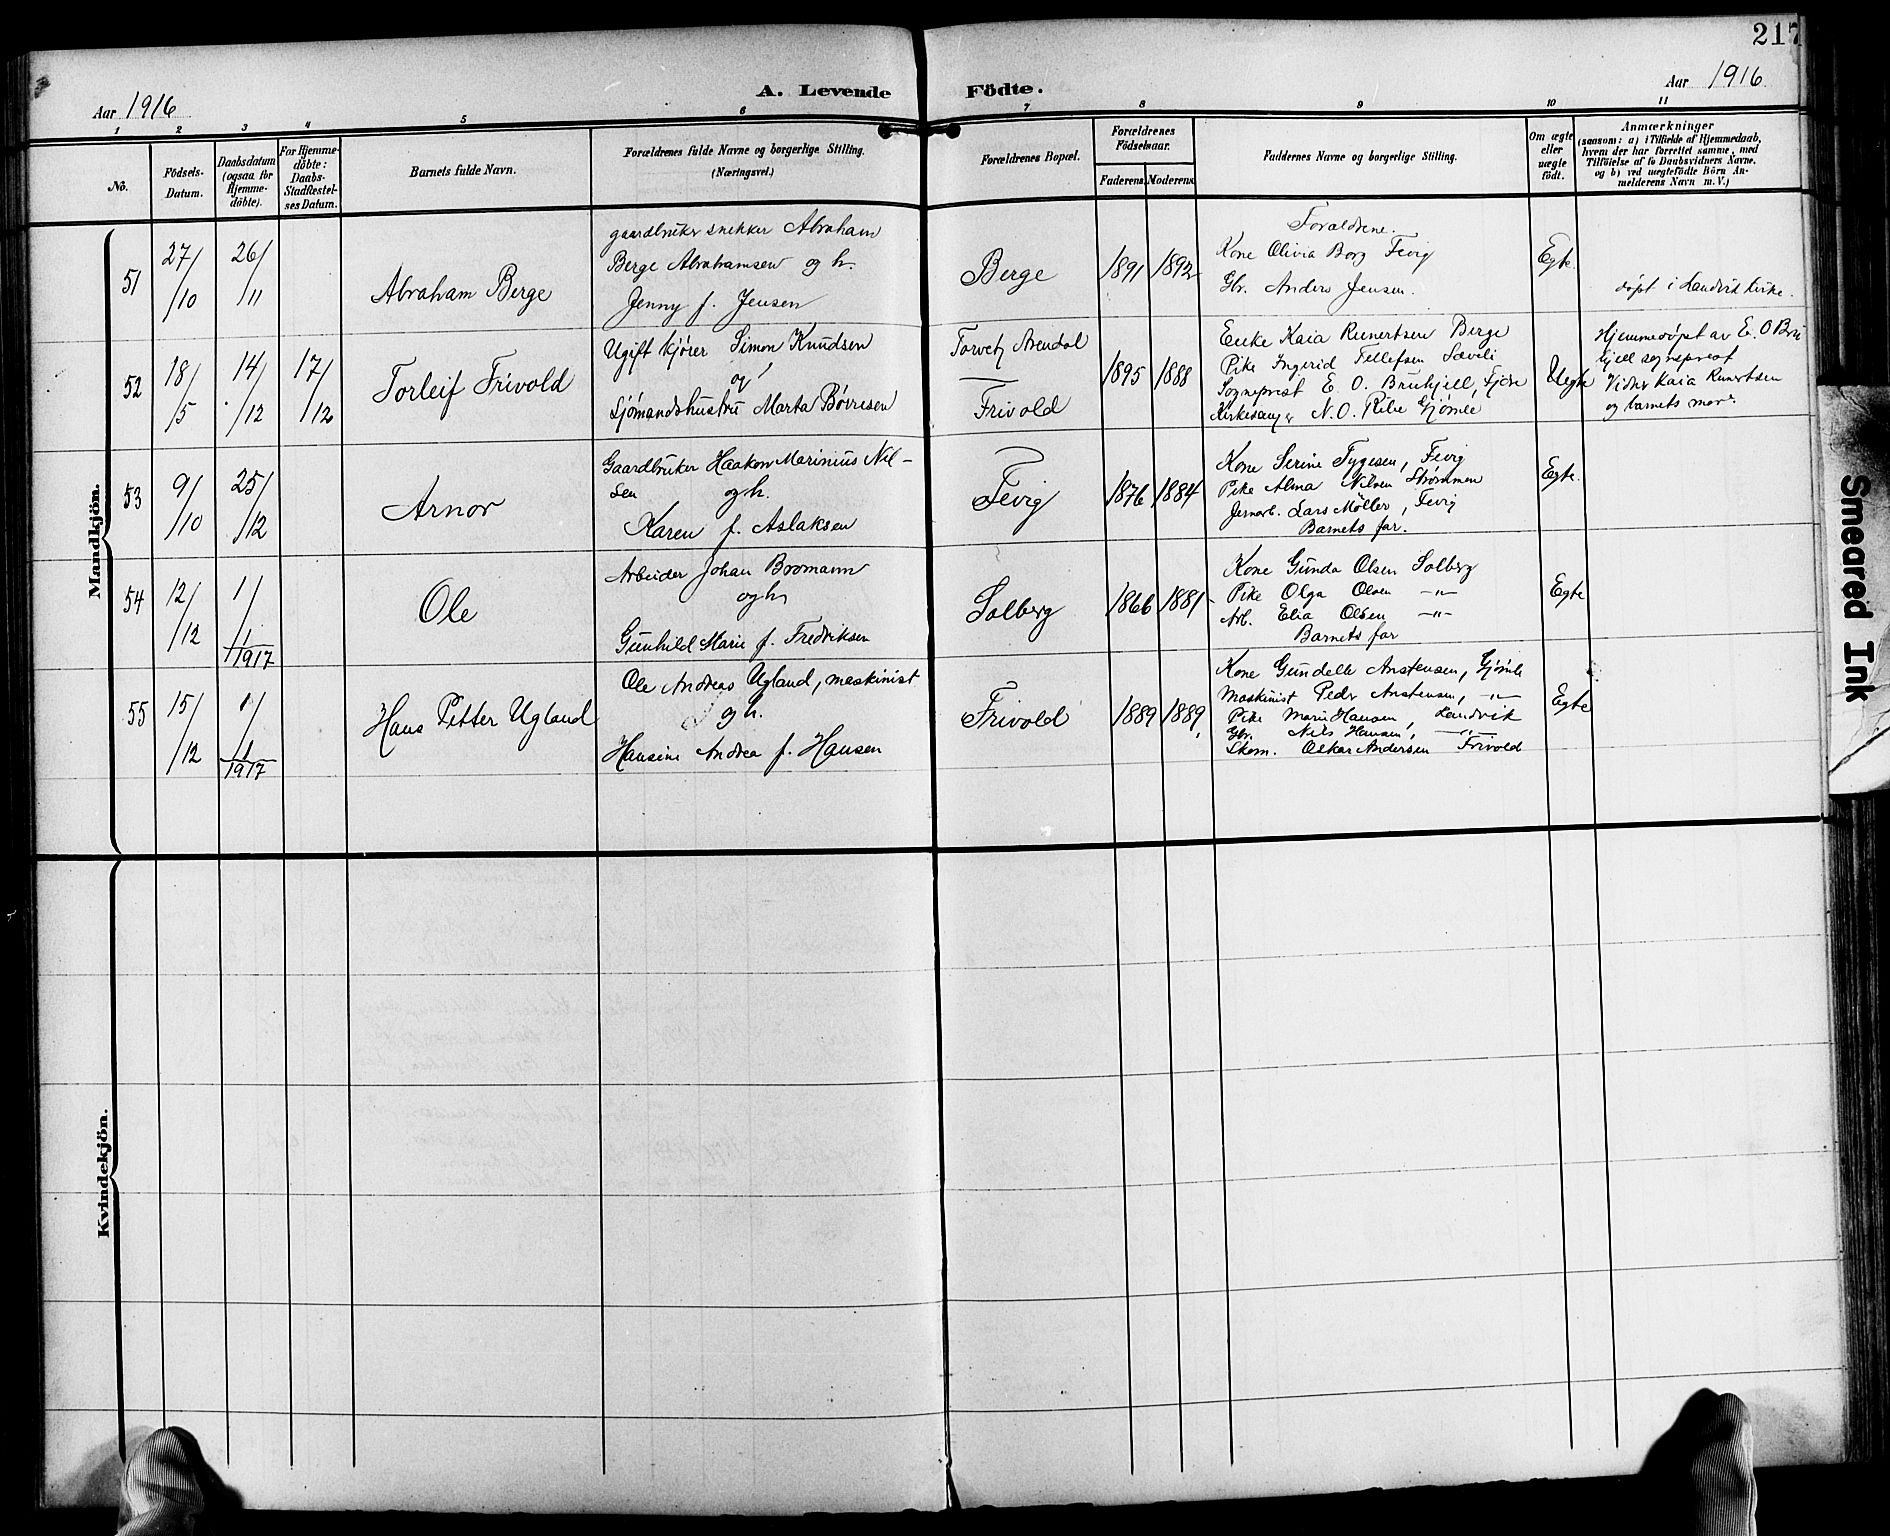 217
Aar 1916
A. Levende Födte.
Aar 1916
1 2 3 4 5 6 7 8 9 10 11
No.
Födsels-
Datum.
Daabsdatum
(ogsaa for
Hjemme-
döbte).
For Hjemme-
döbte:
Daabs-
Stadfæstel-
ses Datum.
Barnets fulde Navn.
Forældrenes fulde Navne og borgerlige Stilling.
(Næringsvei.)
Forældrenes Bopæl.
Forældrenes
Födselsaar.
Faderens. Moderens.
Faddernes Navne og borgerlige Stilling.
Om ægte
eller
uægte
födt.
Anmærkninger
(saasom: a) i Tilfælde af Hjemmedaab,
hvem der har forrettet samme, med
Tilföielse af to Daabsvidners Navne,
og b) ved uægtefödte Börn An-
melderens Navn m. V.)
Mandkjön.
51
27/10
26/11
Abraham Berge
gaardbruker snekker Abraham
Berge Abrahamsen og h.
Jenny f. Jensen
Berge
1891 1892
Foraldrene.
Kone Olivia Borg Fevig
Gbr. Anders Jensen.
Egte.
døpt i Landvik kirke.
52
18/5
14/12
17/12
Torleif Frivold
Ugift kjører Simon Knudsen
og
Sjømandshustru Marta Børresen
Torvet, Arendal
Frivold
1895 1888
Enke Kaia Runertsen Berge
Pike Ingerid Tellefsen Sæveli
Sogneprest E. O. Bruhjell, Fjære
Kirkesanger N. O. Ribe Gjømle
Uegte
Hjemmedøpt av E. O Bru
hjell sogneprest
Vidner Kaia Runertsen
og barnets mor.
53
9/10
25/12
Arnor
Gaardbruker Haakon Marinius Nil-
sen og h.
Karen f. Aslaksen
Fevig
1876 1884
Kone Serine Tygesen, Fevig
Pike Alma Nilsen Strømmen
Jernarb. Lars Möller, Fevig
Barnets far.
Egte.
54
12/12
1/1 1917
Ole
Arbeider Johan Bromann
og h.
Gunhild Marie f. Fredriksen
Solberg
1866 1881
Kone Gunda Olsen Solberg
Pike Olga Olsen -"-
Arb. Elia Olsen -"-
Barnets far
Egte
55
15/12
1/1 1917
Hans Petter Ugland
Ole Andreas Ugland, maskinist
og h.
Hansine Andrea f. Hansen
Frivold
1889 1889
Kone Gundelle Anstensen, Gjømle
Maskinist Peder Anstensen, -"-
Pike Marie Hansen, Landvik
Gbr. Nils Hansen, -"-
Skom. Oskar Andersen Frivold
Egte
Kvindekjön.
Smeared Ink